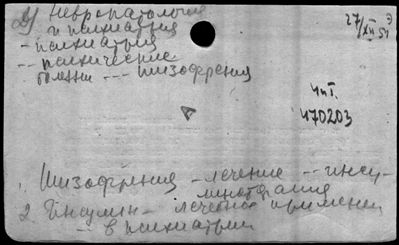 2) Невропатология
и психиатрия
- психиатрия
-- психические
болезни --- шизофрения
27/XII 51
Э
ЧиТ.
470203
1. Шизофрения - лечение -- инсу-
линотерапия
2. Инсулин - лечебное применен
-- в психиатрии